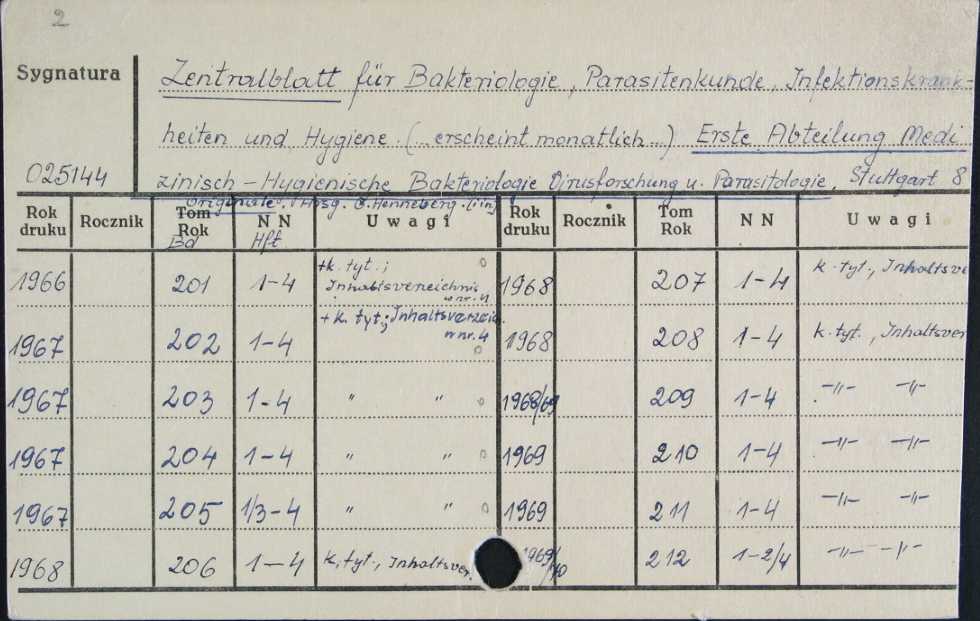 2
Sygnatura
Zentralblatt für Bakteriologie, Parasitenkunde, Infektionskrank-
heiten und Hygiene. (...erscheint monatlich...) Erste Abteilung Medi
025144
zinisch-Hygienische Bakteriologie Virusforschung u. Parasitologie, Stuttgart 8
Originale. Hrsg. G. Henneberg.
Rok druku Rocznik Tom Rok Bd N N Hft Uwagi Rok druku Rocznik Tom Rok N N Uwagi
1966 201 1-4 +k. tyt.; Inhaltsverzeichnis w nr. 4 1968 207 1-4 k. tyt., Inhaltsve
1967 202 1-4 +k. tyt.; Inhaltsverzeic. w nr. 4 1968 208 1-4 k. tyt., Inhaltsver
1967 203 1-4 " " 1968/69 209 1-4 -"- -"-
1967 204 1-4 " " 1969 210 1-4 -"- -"-
1967 205 1/3-4 " " 1969 211 1-4 -"- -"-
1968 206 1-4 k. tyt., Inhaltsver. 1969/70 212 1-2/4 -"- -"-